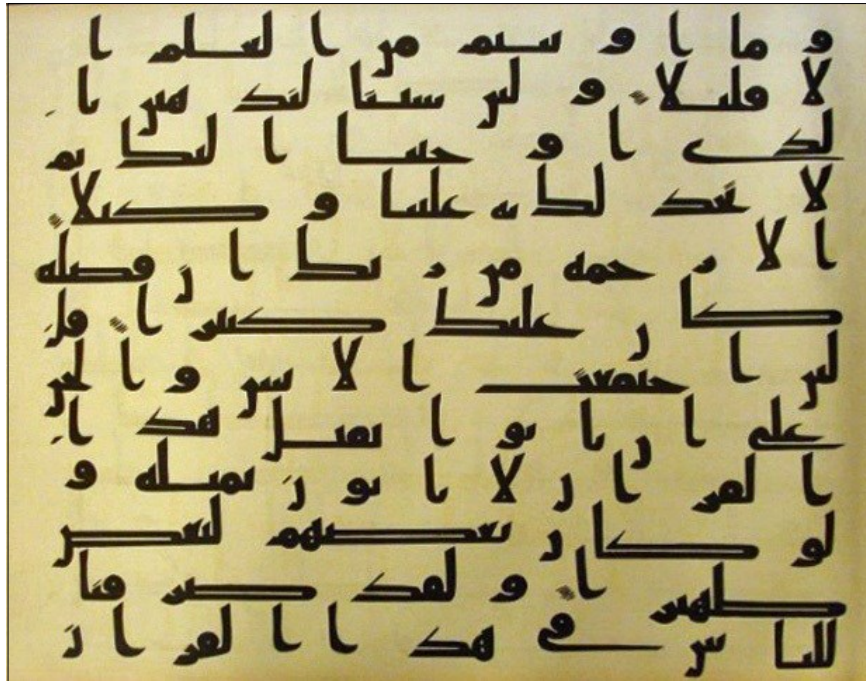 وما اوتيتم من العلم ا
لا قليلا ولئن شئنا لنذهبن با
لذي اوحينا اليك ثم
لا تجد لك به علينا وكيلا
الا رحمة من ربك ان فضله
كان عليك كبيرا قل
لئن اجتمعت الانس والجن
على ان ياتوا بمثل هذا
القران لا ياتون بمثله و
لو كان بعضهم لبعض
ظهيرا ولقد صرفنا
للناس في هذا القران